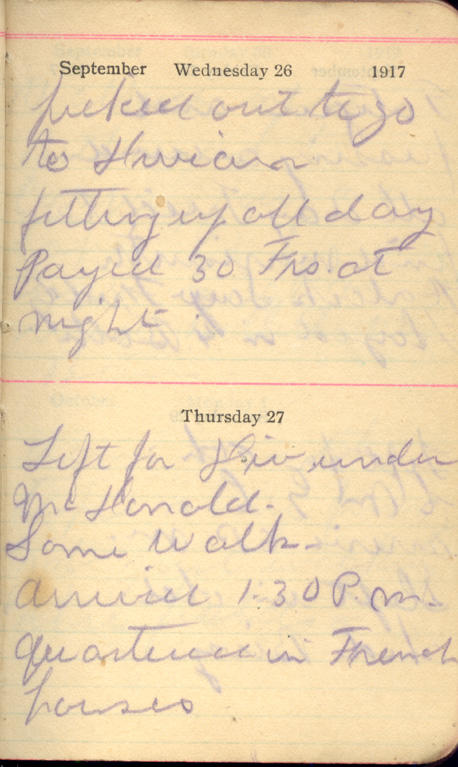 September Wednesday 26 1917
picked out to go
to Divison
fitting up all day
Payed 30 Frs. at
night
Thursday 27
Left for Div under
Mc Donald.
Some Walk.
arrived 1.30 P.m.
Quartered in French
houses